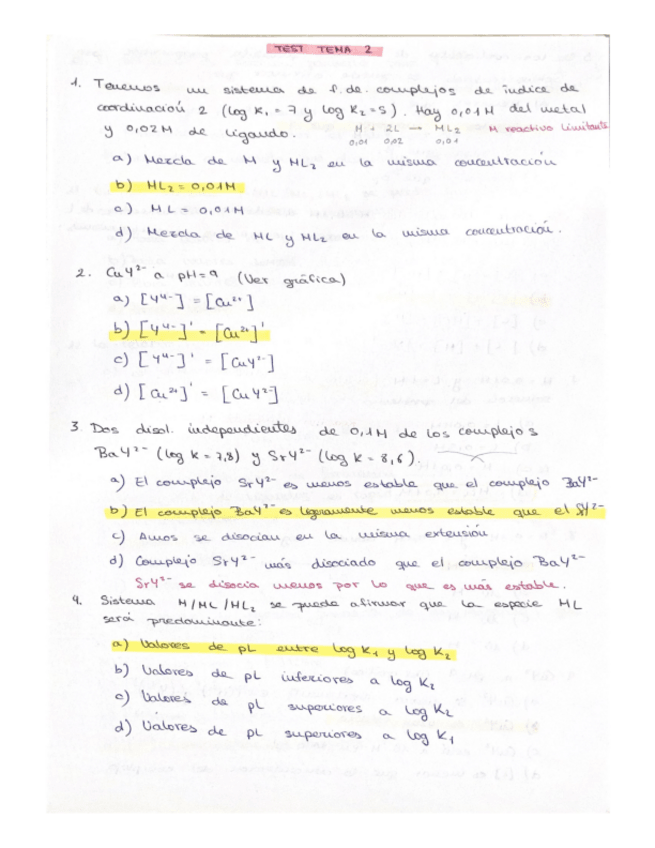 TEST TEMA 2
1. Tenemos un sistema de f. de. complejos de índice de
coordinación 2 (log K₁ = 7 y log K₂ = 5). Hay 0,01M del metal
y 0,02M de ligando. M + 2L → ML₂ M reactivo limitante
0,01 0,02 0,01
a) Mezcla de M y ML₂ en la misma concentración
b) ML₂ = 0,01M.
c) ML = 0,01M
d) Mezcla de ML y ML₂ en la misma concentración.
2. CuY²⁻ a pH=9 (Ver gráfica)
a) [Y⁴⁻] = [Cu²⁺]
b) [Y⁴⁻]' = [Cu²⁺]'
c) [Y⁴⁻]' = [CuY²⁻]
d) [Cu²⁺]' = [CuY²⁻]
3. Dos disol. independientes de 0,1M de los complejos
BaY²⁻ (log K = 7,8) y SrY²⁻ (log K = 8,6).
a) El complejo SrY²⁻ es menos estable que el complejo BaY²⁻
b) El complejo BaY²⁻ es ligeramente menos estable que el SrY²⁻
c) Amos se disocian en la misma extensión
d) Complejo SrY²⁻ más disociado que el complejo BaY²⁻
SrY²⁻ se disocia menos por lo que es más estable.
4. Sistema M/ML/ML₂ se puede afirmar que la especie ML
será predominante:
a) Valores de pL entre log K₁ y log K₂
b) Valores de pL inferiores a log K₂
c) Valores de pL superiores a log K₂
d) Valores de pL superiores a log K₁